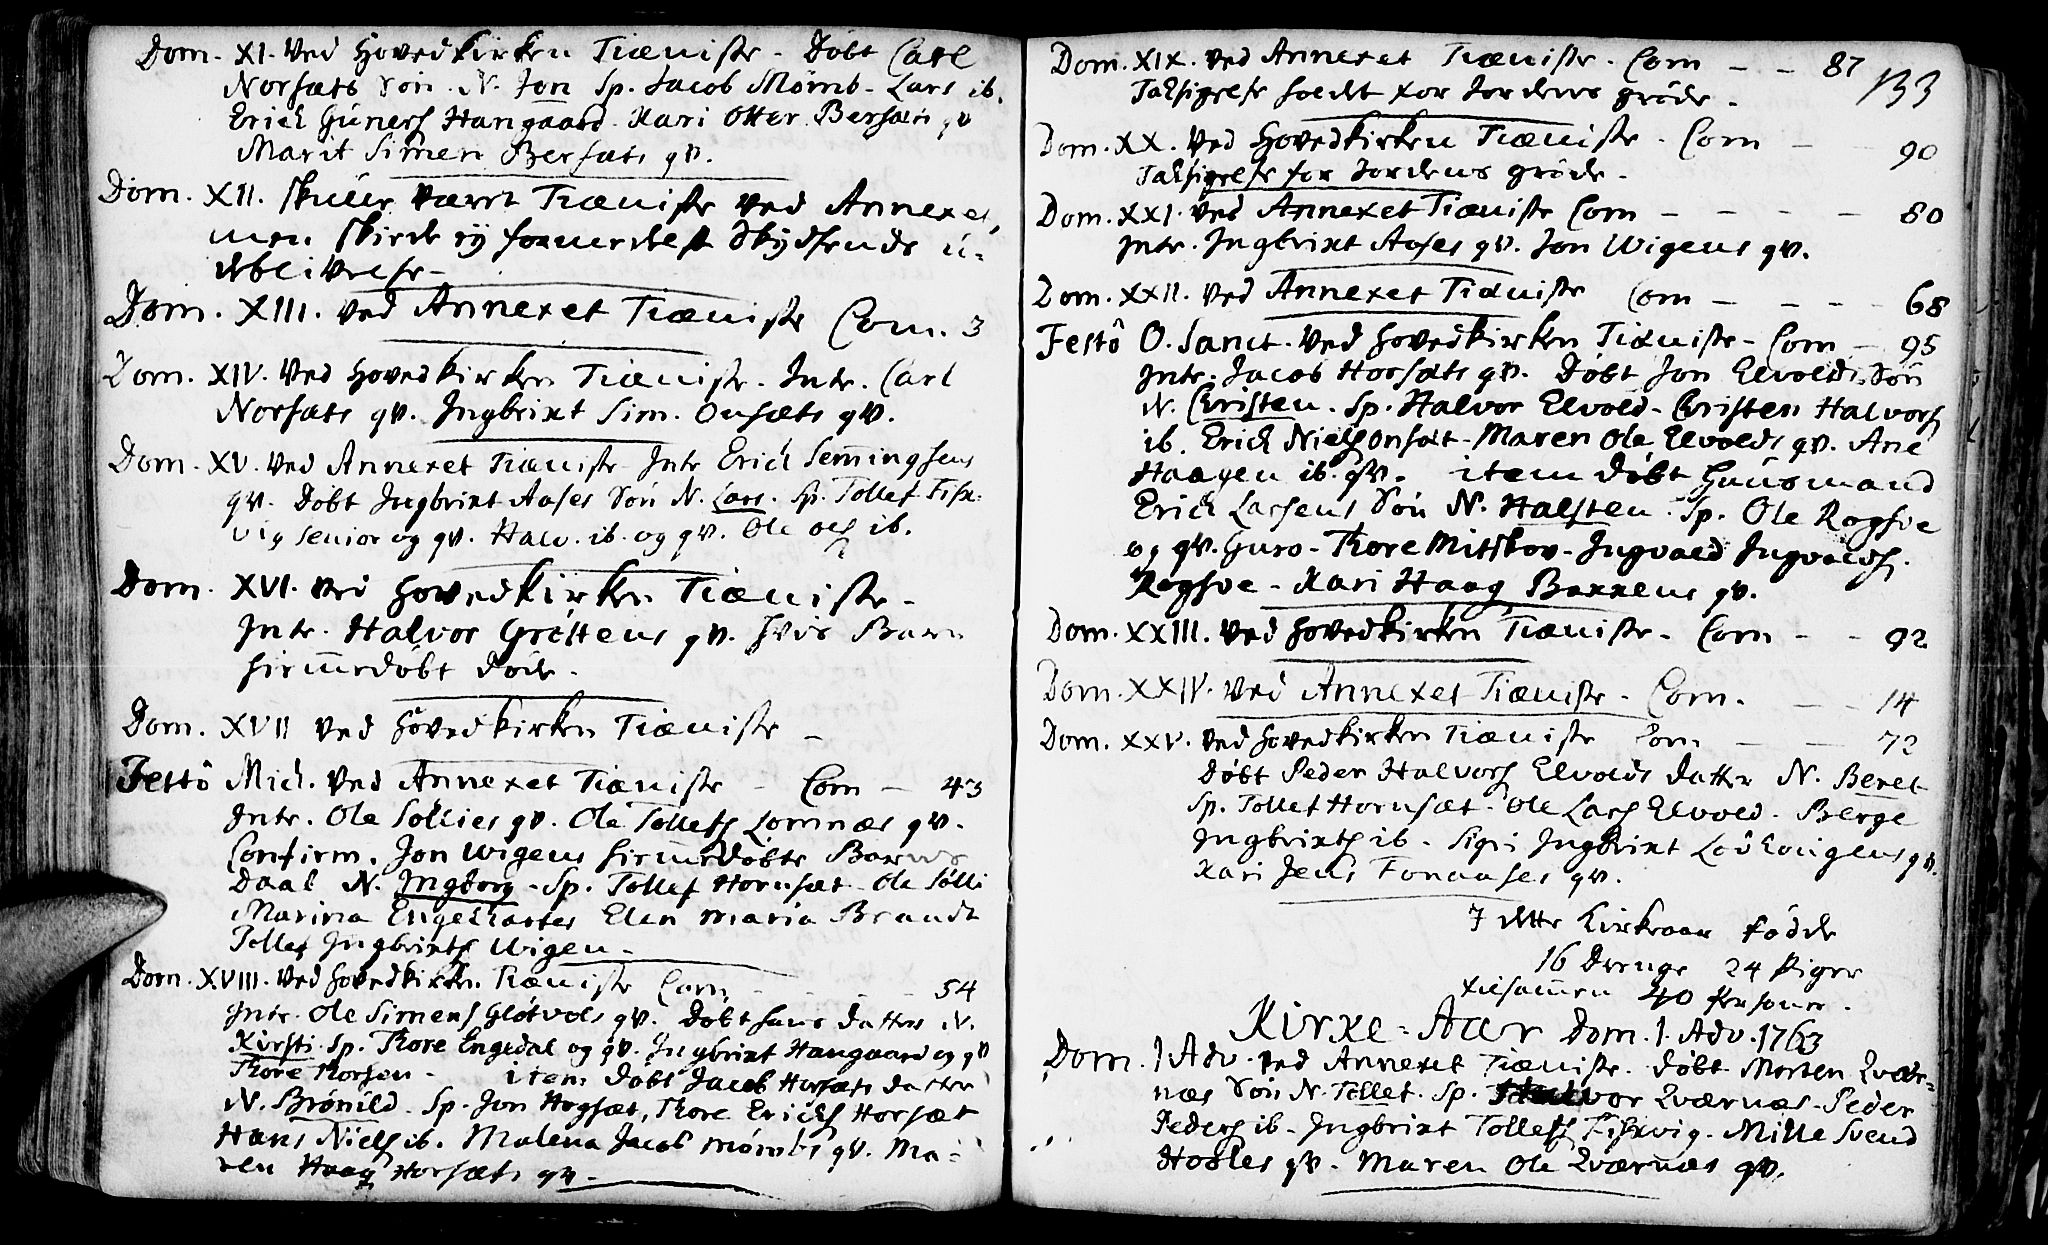 Dom. XI. Ved Hovedkirken Tiæniste - Døbt Carl
Norsæts Søn. N. Jon Sp. Jacob Mømb - Lars ib.
Erich Guners Haugaard. Kari Otter Bersæts qv
Marit Simen Bersæts qv.
Dom. XII. skulle været Tiæniste ved Annexet
men skede ej formedelst Skydsends u-
deblivelse -
Dom. XIII. ved Annexet Tiæniste Com. 3
Dom. XIV. Ved Hovedkirken Tiæniste. Intr. Carl
Norsæts qv. Ingbrixt Sim. Onsæts qv.
Dom. XV. Ved Annexet Tiæniste Intr Erich Semingsens
qv. Døbt Ingbrixt Aases Søn N. Lars. Sp. Tollef Fisk-
vig senior og qv. Halv. ib. og qv. Ole Ols ib.
Dom. XVI. Ved Hovedkirken Tiæniste -
Intr. Halvor Grøttens qv. Hvis Barn
hiemmedøbt døde.
Dom. XVII Ved Hovedkirken Tiæniste -
Festô Mich. Ved Annexet Tiæniste - Com - 43
Intr. Ole Sollies qv. Ole Tollefs Lomnæs qv.
Confirm. Jon Wigens hiemmedøbte Barns
Daab N. Ingborg - Sp. Tollef Hornsæt - Ole Solli
Marina Engelharter Elen Maria Brandt
Tollef Ingbrixts Wigen -
Dom. XVIII. Ved Hovedkirken Tiæniste Com - - - 54
Intr. Ole Simens Gløtvols qv. Døbt hans Datter N.
Kirsti Sp. Thore Engedal og qv. Ingbrixt Haugaard og qv
Thore Thorsen - item døbt Jacob Horsæts Datter
N. Brønild. Sp. Jon Hogsæt, Thore Erichs Horsæt
Hans Niels ib. Malena Jacob Mømbs qv. Ma-
ren Haag Horsæts qv -
Dom. XIX. Ved Annexet Tiæniste. Com - - 87
133
Taksigelse holdt for Jordens grøde -
Dom. XX. Ved Hovedkirken Tiæniste - Com - - 90
Taksigelse for Jordens grøde -
Dom. XXI. Ved Annexet Tiæniste Com - - - - 80
Intr. Ingbrixt Aases qv. Jon Wigens qv.
Dom. XXII. Ved Annexet Tiæniste Com - - - - 68
Festô O. Sanct. Ved Hovedkirken Tiæniste - Com - 95
Intr. Jacob Horsæts qv. Døbt Jon Elvolds Søn
N. Christen. Sp. Halvor Elvold - Christen Halvors
ib. Erich Niels Onsæt - Maren Ole Elvolds qv. Ane
Haagen ib. qv. item døbt Huusmand
Erich Larsens Søn N. Halsten. Sp. Ole Rogsve
og qv. Guro - Thore Mitskov - Ingvald Ingvalds.
Rogsve - Kari Haag Bakkens qv.
Dom. XXIII. Ved Hovedkirken Tiæniste - Com - - 92
Dom. XXIV. Ved Annexet Tiæniste - Com. - - 14
Dom. XXV. Ved Hovedkirken Tiæniste Com - - 72
Døbt Peder Halvors Elvolds Datter N. Beret
Sp. Tollef Hornsæt - Ole Lars Elvold. Berge
Ingbrixts ib - Sigri Ingbrixt Løvhougens qv.
Kari Jens Fonaases qv.
I dette Kirkeaar fødde
16 Drenge 24 Piger
tilsammen 40 Personer.
Kirke-Aar Dom. 1. Adv. 1763
Dom. 1 Adv. Ved Annexet Tiæniste. Døbt Morten Qvær-
næs Søn N. Tollef. Sp. Halvor Qværnæs - Peder
Peders ib - Ingbrixt Tollefs Fiskvig - Mille Svend
Hodles qv - Maren Ole Qværnæs qv.